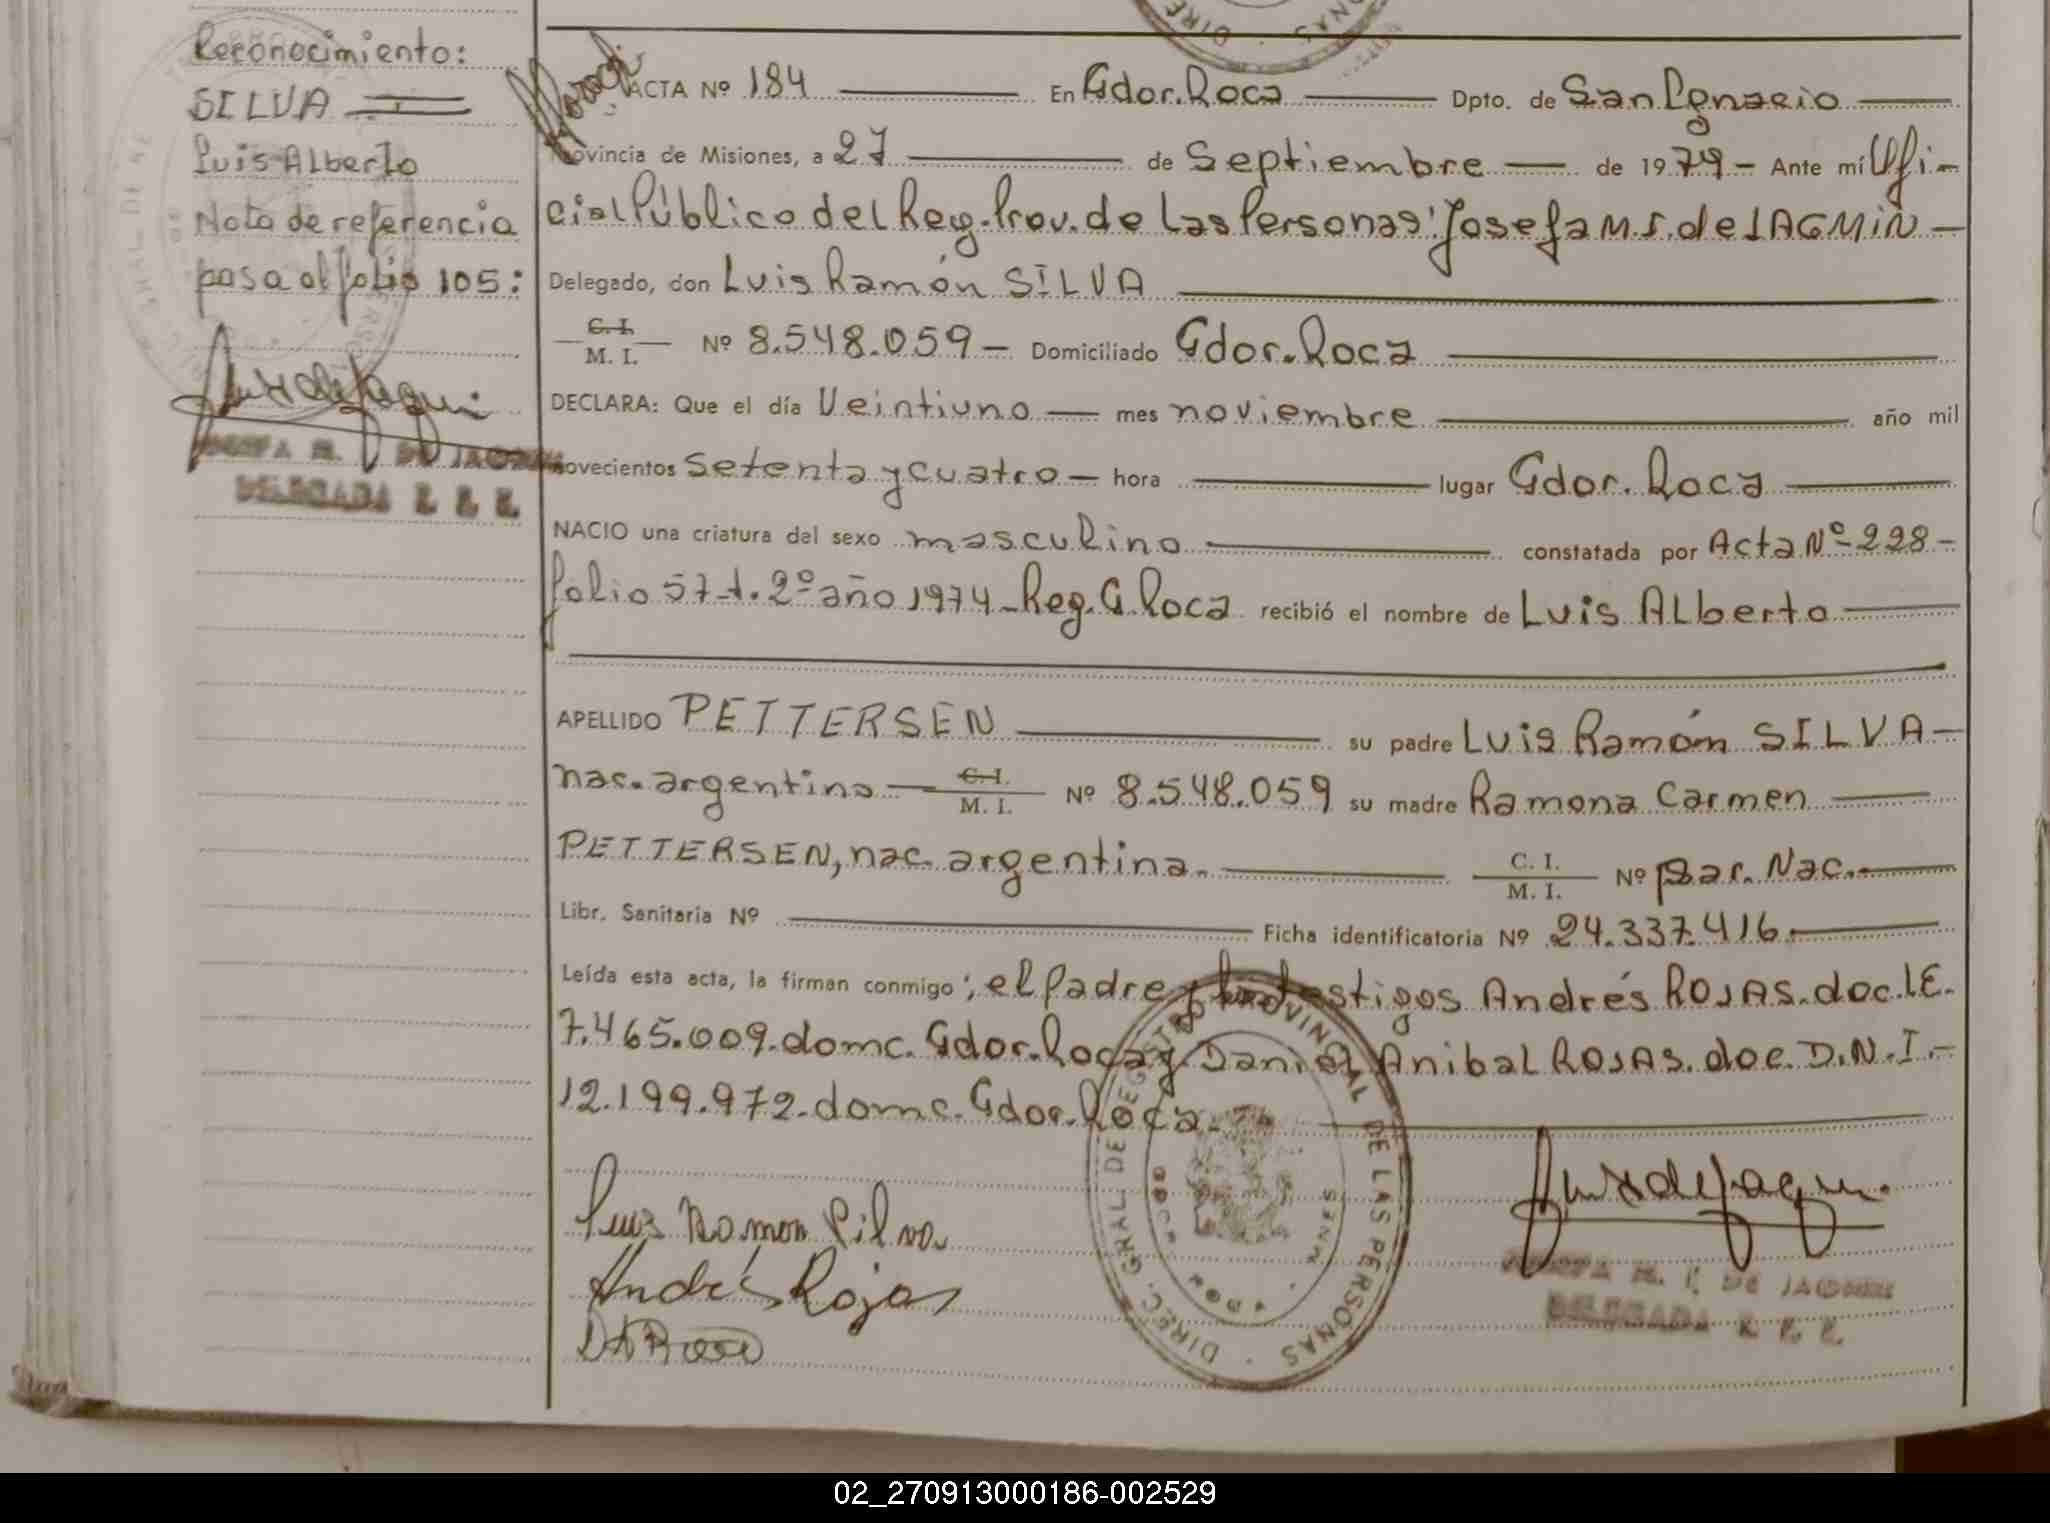 Reconocimiento:
SILVA
Luis Alberto
Nota de referencia
pasa al folio 105:
DE JAGMIN
DELEGADA R. P. P.
ACTA Nº 184 En Gdor. Roca Dpto. de San Ignacio
Provincia de Misiones, a 27 de Septiembre de 1979 - Ante mí Ofi-
cial Público del Reg. Prov. de las Personas: Josefa M. F. de JAGMIN -
Delegado, don Luis Ramón SILVA
C. I.
M. I. Nº 8.548.059 - Domiciliado Gdor. Roca
DECLARA: Que el día Veintiuno mes noviembre año mil
novecientos setenta y cuatro - hora lugar Gdor. Roca
NACIO una criatura del sexo masculino constatada por Acta Nº 228 -
folio 57 t. 2º año 1974 - Reg. G. Roca recibió el nombre de Luis Alberto
APELLIDO PETTERSEN su padre Luis Ramón SILVA -
nac. argentino C. I.
M. I. Nº 8.548.059 su madre Ramona Carmen
PETTERSEN, nac. argentina. C. I.
M. I. Nº Par. Nac.
Libr. Sanitaria Nº Ficha identificatoria Nº 24.337.416.
Leída esta acta, la firman conmigo; el Padre y los testigos Andrés ROJAS. doc. L.E.
7.465.009. domc. Gdor. Roca y Daniel Anibal ROJAS. doc. D.N.I.-
12.199.972. domc. Gdor. Roca.
Luis Ramon Silva
Andrés Rojas
DIREC. GRAL DE REGISTRO PROVINCIAL DE LAS PERSONAS
DE JAGMIN
DELEGADA R. P. P.
02_270913000186-002529